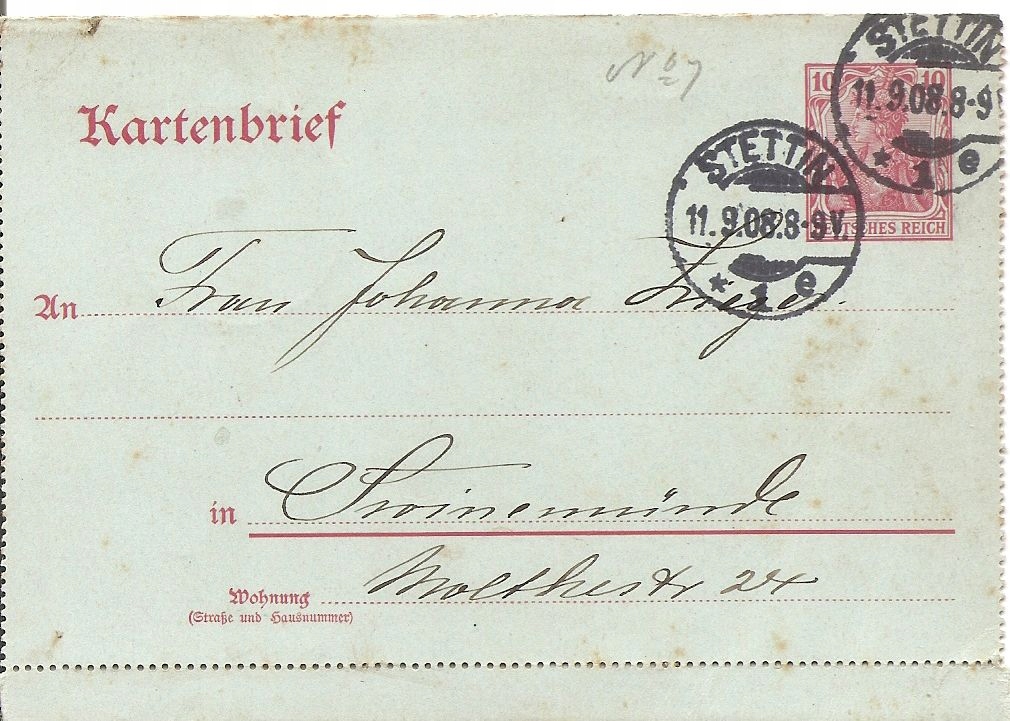 Kartenbrief
10 10
DEUTSCHES REICH
STETTIN
11.9.08.8-9
* 1 e
STETTIN
11.9.08.8-9V.
* 1 e
An Frau Johanna
in Swinemünde
Moltkestr 24
Wohnung
(Straße und Hausnummer)